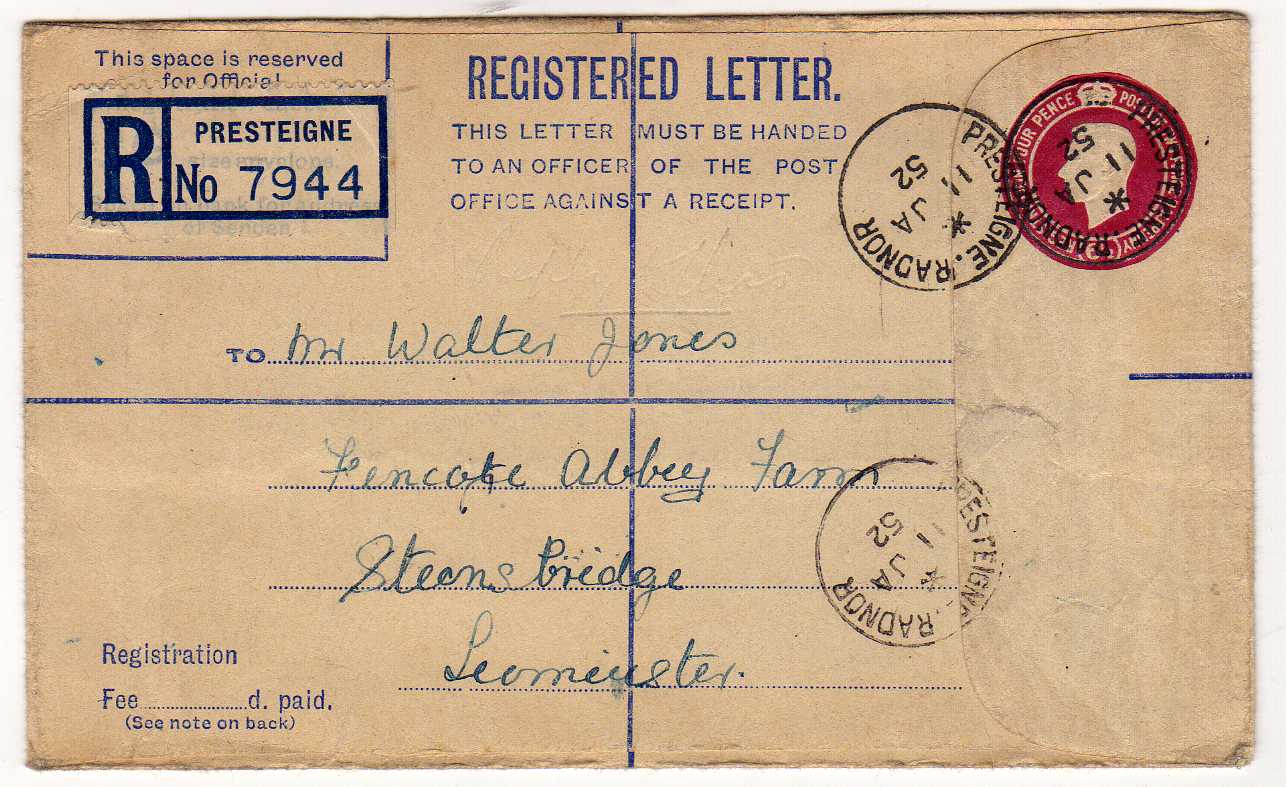 This space is reserved
for Official
R PRESTEIGNE
No 7944
size envelope.
of Sender.
REGISTERED LETTER.
THIS LETTER MUST BE HANDED
TO AN OFFICER OF THE POST
OFFICE AGAINST A RECEIPT.
PRESTEIGNE. RADNOR
11 JA
52
FOUR PENCE POSTAGE
PRESTEIGNE. RADNOR
11 JA
52
TO Mr Walter Jones
Fencote Abbey Farm
Steensbridge
Leominster.
PRESTEIGNE. RADNOR
11 JA
52
Registration
Fee d. paid.
(See note on back)